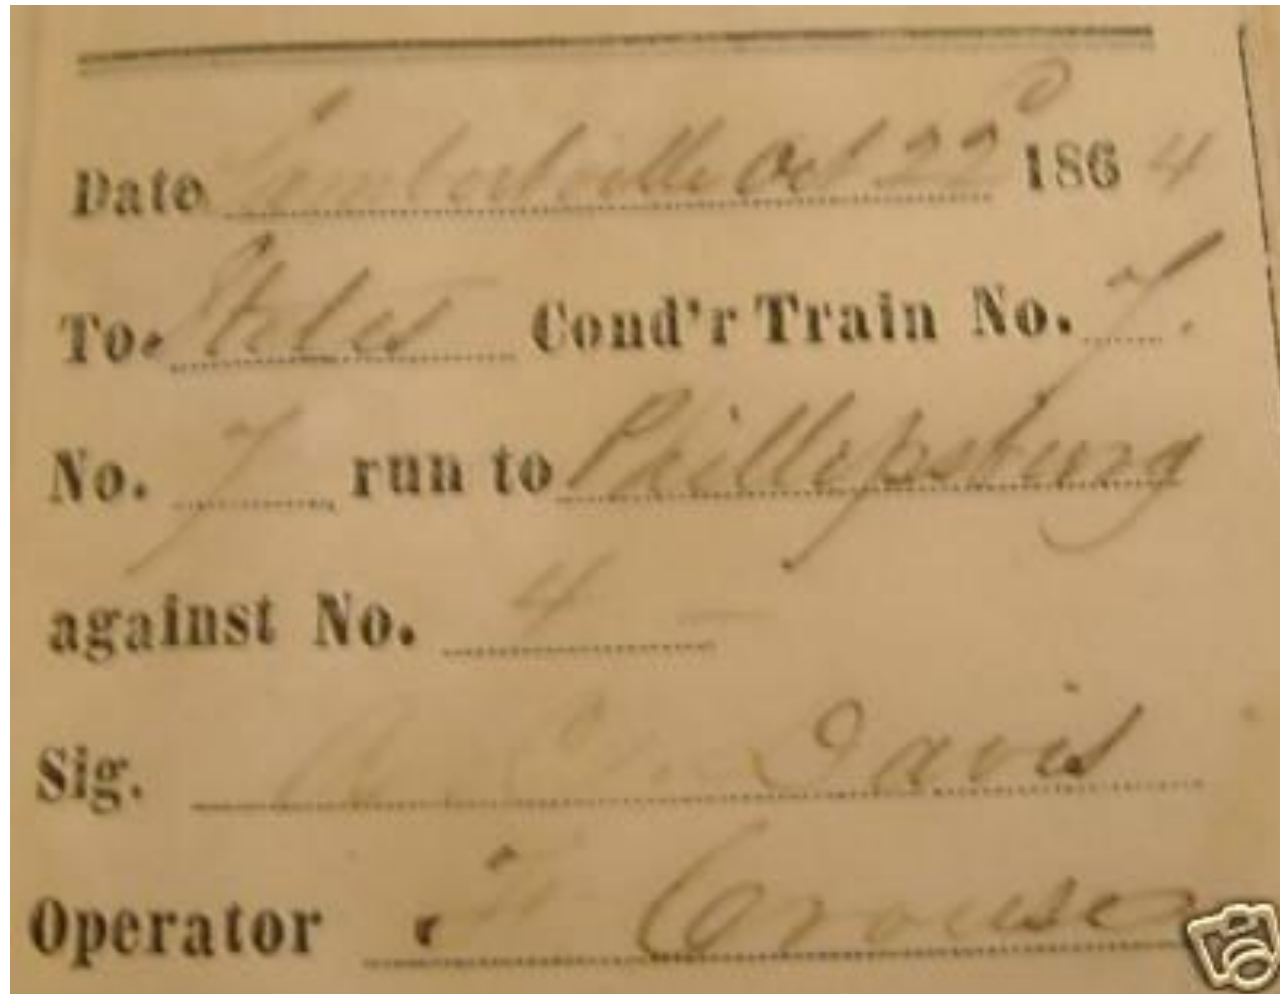 Date Lambertville Oct 22 1864
To. Cond'r Train No. 7.
No. 7 run to Phillipsburg
against No. 4 —
Sig. Davis
Operator Crouse